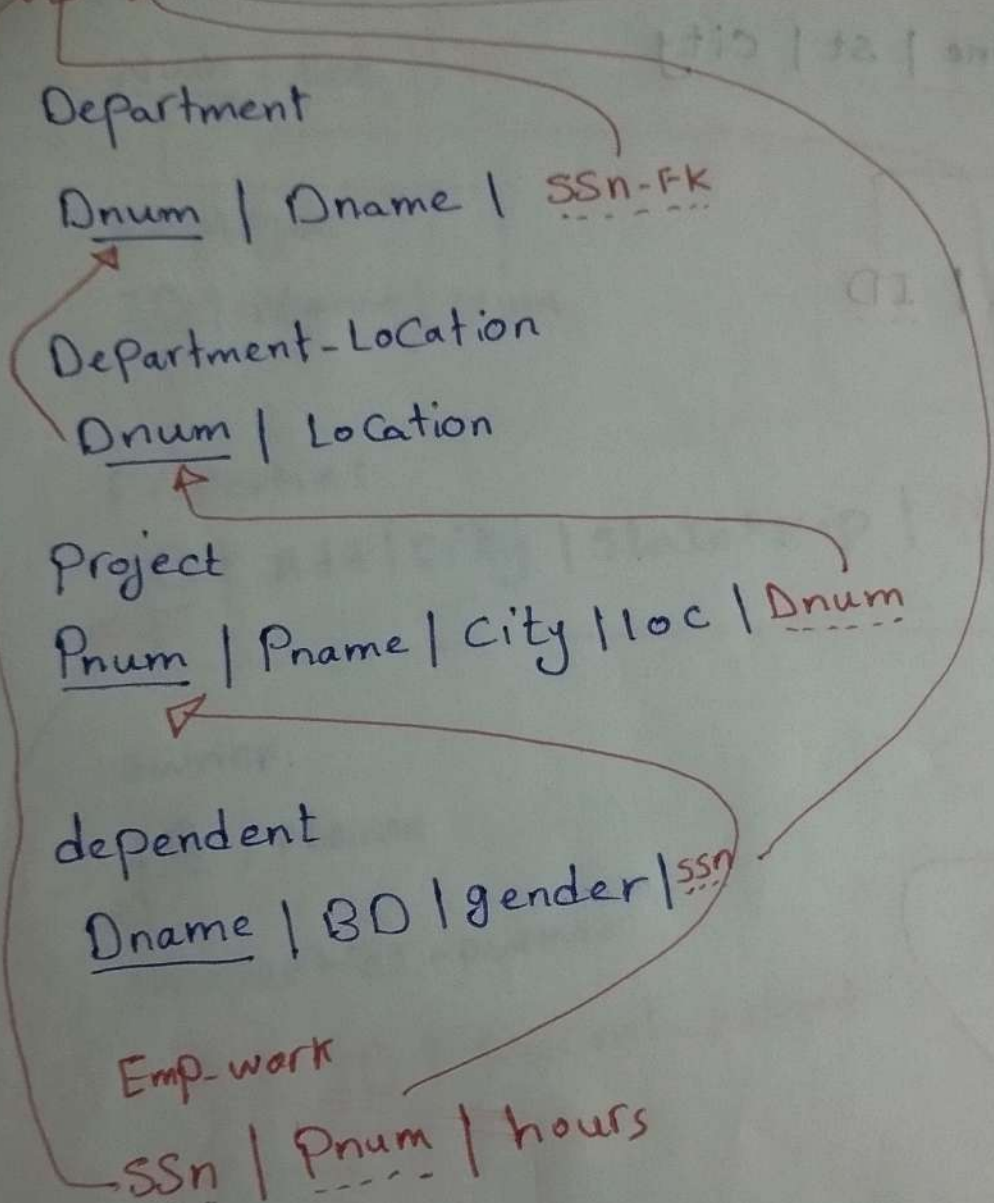 Department
Dnum | Dname | SSn-FK
Department-Location
Dnum | Location
Project
Pnum | Pname | City | loc | Dnum
dependent
Dname | BD | gender | ssn
Emp-work
SSn | Pnum | hours